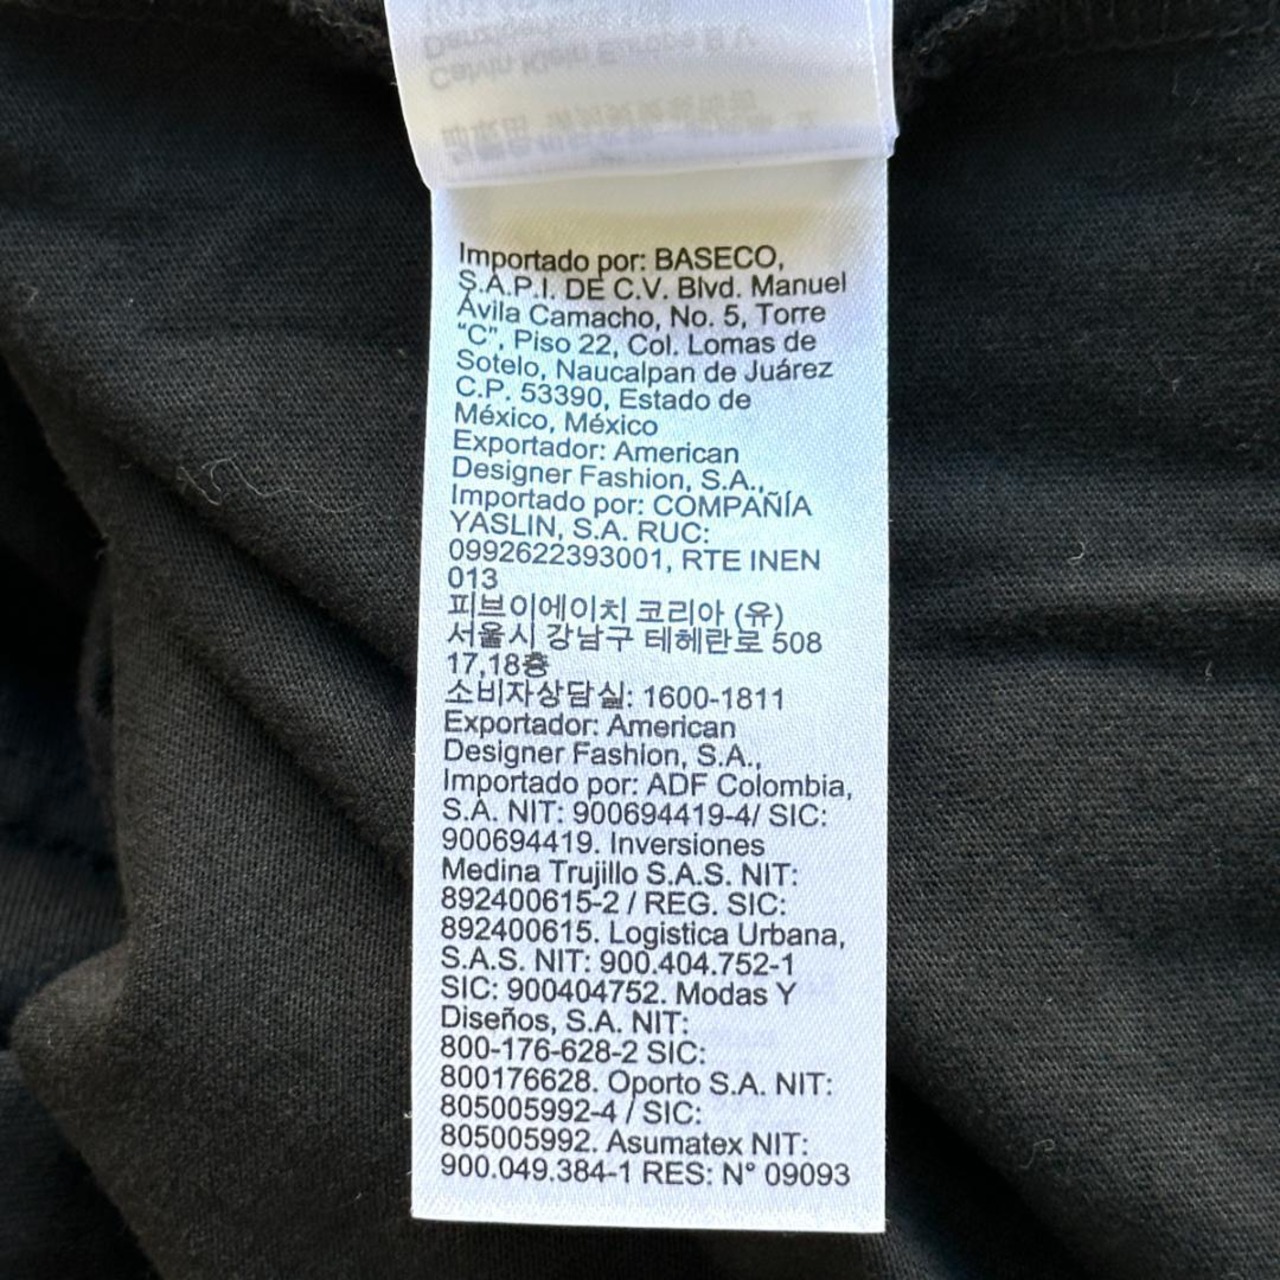 Importado por: BASECO,
S.A.P.I. DE C.V. Blvd. Manuel
Ávila Camacho, No. 5, Torre
“C”, Piso 22, Col. Lomas de
Sotelo, Naucalpan de Juárez
C.P. 53390, Estado de
México, México
Exportador: American
Designer Fashion, S.A.,
Importado por: COMPAÑÍA
YASLIN, S.A. RUC:
0992622393001, RTE INEN
013
피브이에이치 코리아 (유)
서울시 강남구 테헤란로 508
17,18층
소비자상담실: 1600-1811
Exportador: American
Designer Fashion, S.A.,
Importado por: ADF Colombia,
S.A. NIT: 900694419-4/ SIC:
900694419. Inversiones
Medina Trujillo S.A.S. NIT:
892400615-2 / REG. SIC:
892400615. Logistica Urbana,
S.A.S. NIT: 900.404.752-1
SIC: 900404752. Modas Y
Diseños, S.A. NIT:
800-176-628-2 SIC:
800176628. Oporto S.A. NIT:
805005992-4 / SIC:
805005992. Asumatex NIT:
900.049.384-1 RES: N° 09093